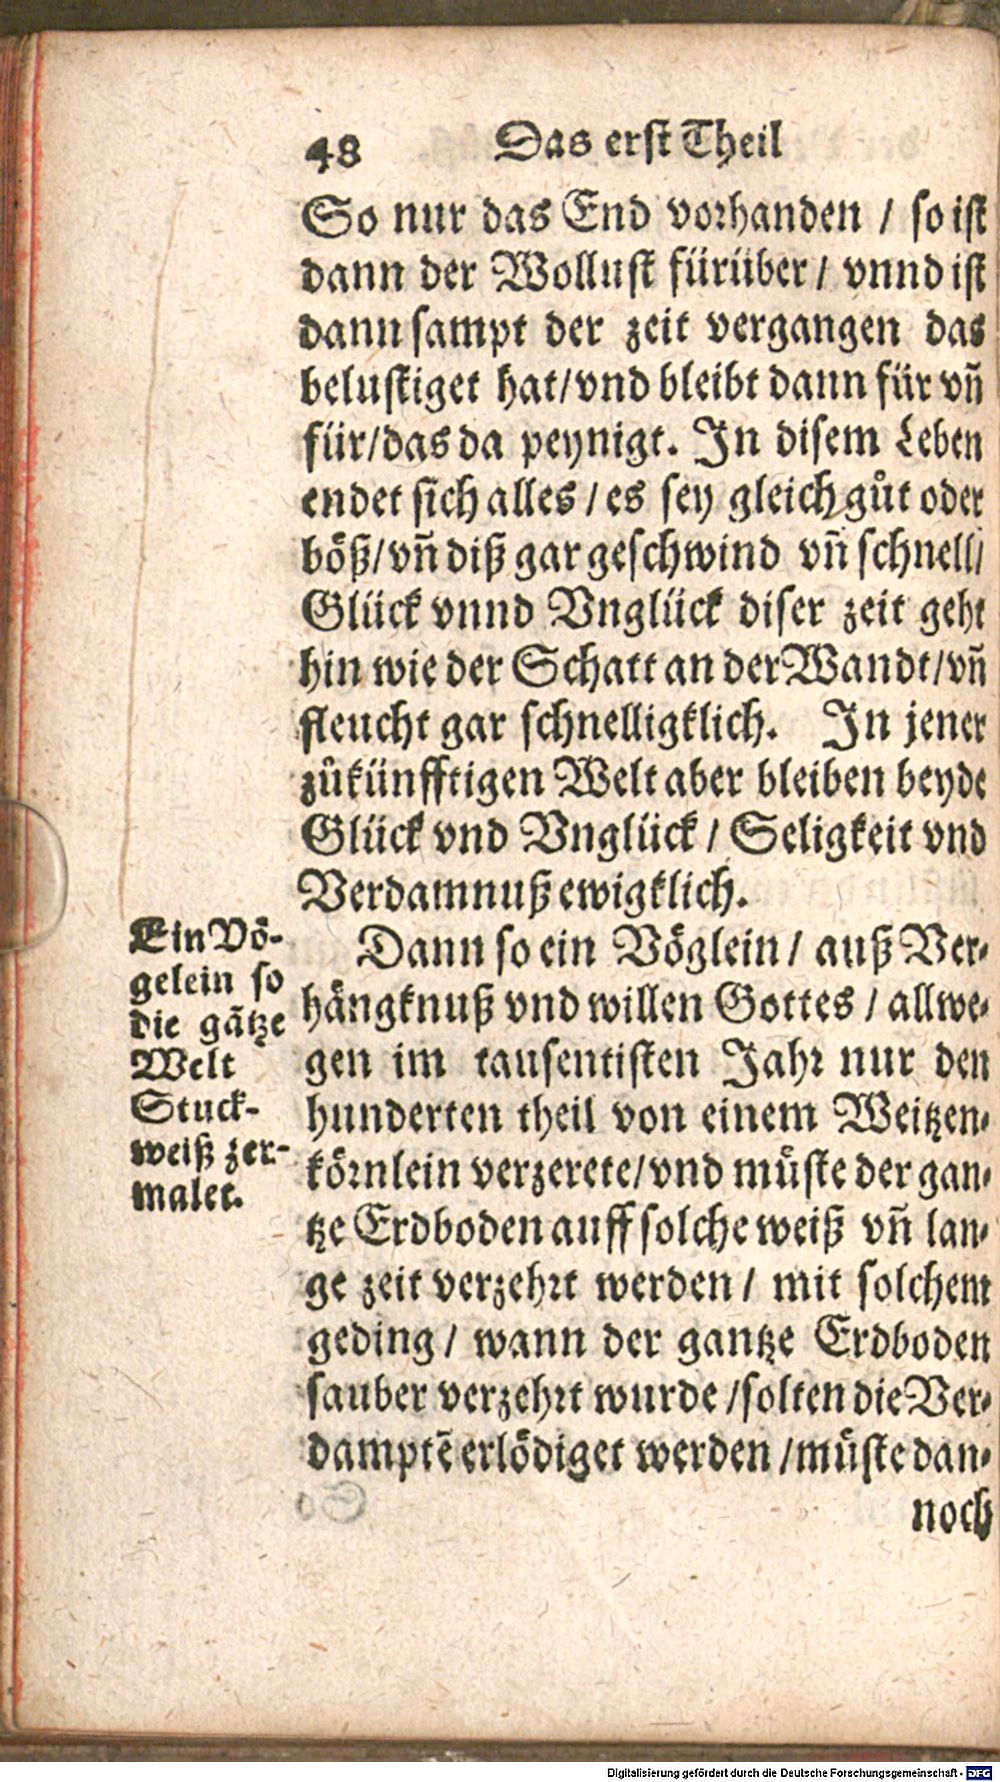 48 Das erst Theil
So nur das End vorhanden / so ist
dann der Wollust fürüber / vnnd ist
dann sampt der zeit vergangen das
belustiget hat/vnd bleibt dann für vñ
für/das da peynigt. In disem Leben
endet sich alles / es sey gleich gůt oder
böß/vñ diß gar geschwind vñ schnell/
Glück vnnd Vnglück diser zeit geht
hin wie der Schatt an der Wandt/vñ
fleucht gar schnelligklich. In jener
zůkünfftigen Welt aber bleiben beyde
Glück vnd Vnglück / Seligkeit vnd
Verdamnuß ewigklich.
Ein Vö-
gelein so
die gãtze
Welt
Stuck-
weiß zer-
malet.
Dann so ein Vöglein / auß Ver-
hängknuß vnd willen Gottes / allwe-
gen im tausentisten Jahr nur den
hunderten theil von einem Weitzen-
körnlein verzerete/vnd müste der gan-
tze Erdboden auff solche weiß vñ lan-
ge zeit verzehrt werden / mit solchem
geding / wann der gantze Erdboden
sauber verzehrt wurde /solten die Ver-
damptẽ erlödiget werden /müste dan-
noch
Digitalisierung gefördert durch die Deutsche Forschungsgemeinschaft - DFG